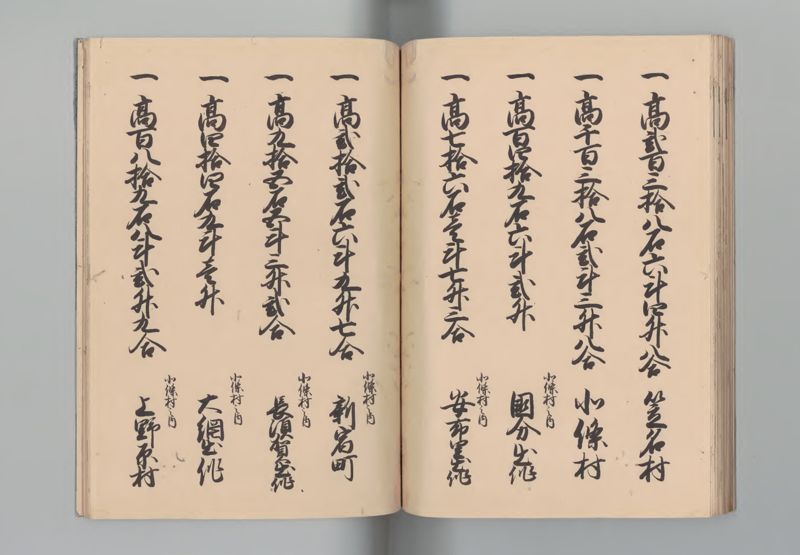 一 高弐百三拾八石六斗四升八合 笠名村
一 高千百三拾八石弐斗三升八合 北條村
一 高百四拾九石六斗弐升 北條村之内 國分出作
一 高七拾六石壱斗七升三合 北條村之内 安布里出作
一 高弐拾弐石六斗九升七合 北條村之内 新宿町
一 高九拾五石五斗三升弐合 北條村之内 長須賀出作
一 高四拾四石九斗壱升 北條村之内 大網出作
一 高百八拾九石八斗弐升九合 上野原村